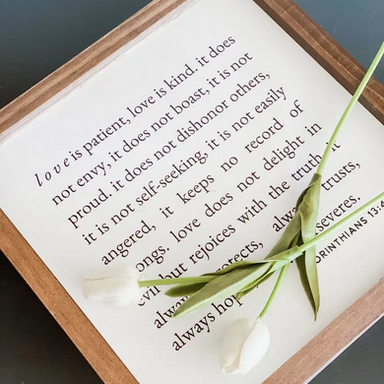 love is patient, love is kind. it does
not envy, it does not boast, it is not
proud. it does not dishonor others,
it is not self-seeking, it is not easily
angered, it keeps no record of
ongs. love does not delight in
evil but rejoices with the truth. it
alwa otects, alwa trusts,
always hop severes.
ORINTHIANS 13:4